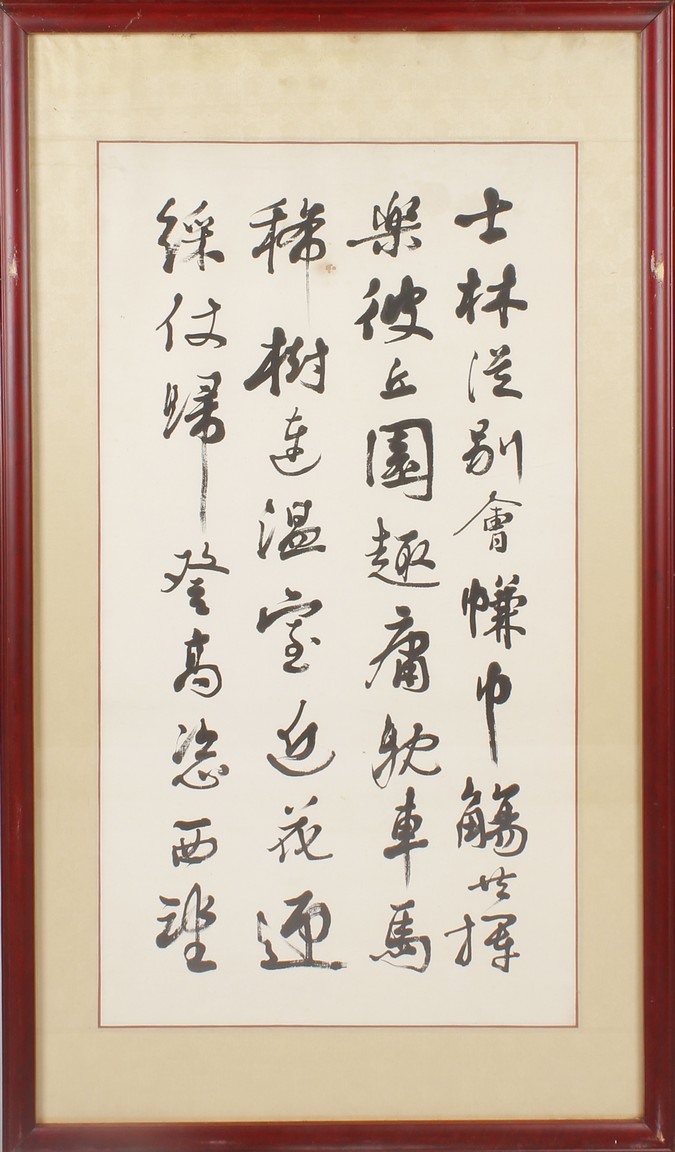 士林從別會幞巾觴共揮
樂彼丘園趣庸躭車馬
稀樹連溫室近花迎
綵仗歸登高恣西望